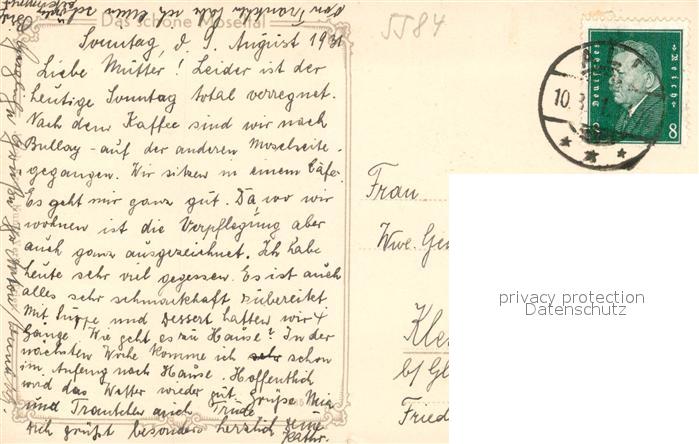 Das schöne Moseltal
5584
Sonntag, d. 9. August 1931
Liebe Mutter! Leider ist der
heutige Sonntag total verregnet.
Nach dem Kaffee sind wir nach
Bullay - auf der anderen Moselseite -
gegangen. Wir sitzen in einem Café.
Es geht mir ganz gut. Da, wo wir
wohnen ist die Verpflegung aber
auch ganz ausgezeichnet. Ich habe
heute sehr viel gegessen. Es ist auch
alles sehr schmackhaft zubereitet
Mit Suppe und Dessert hatten wir 4
Gänge. Wie geht es zu Hause? In der
nächsten Woche komme ich schon
im Anfang nach Hause. Hoffentlich
wird das Wetter wieder gut. Grüße
und Trautchen auch Trude
Dich grüßt besonders herzlich
Käthe.
Deutsches Reich
8
10.8.
Frau
Wwe.
Kle
b/Gl
Fried
privacy protection
Datenschutz